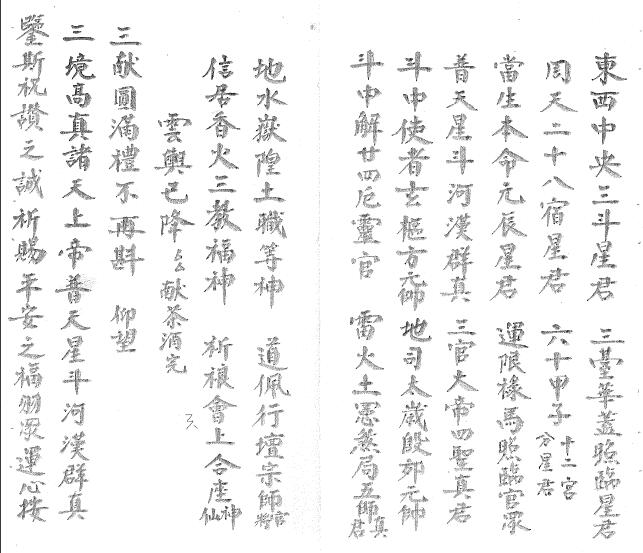 東西中央三斗星君 三臺華蓋照臨星君
周天二十八宿星君 六十甲子十二宮分星君
當生本命元辰星君 運限祿馬照臨官眾
普天星斗河漢群真 三官大帝四聖真君
斗中使者玄樞方元帥 地司太歲殷郊元帥
斗中解廿四厄靈官 雷火土 煞局五師真君
地水嶽隍土職等神 道佩行壇宗師官將
信居香火三教福神 祈禳會上合座神仙
雲輿已降 献茶酒完
三献圓滿禮不再斟 仰望
三境高真諸天上帝普天星斗河漢群真
鑒斯祝讚之誠祈賜平安之福 眾運心按